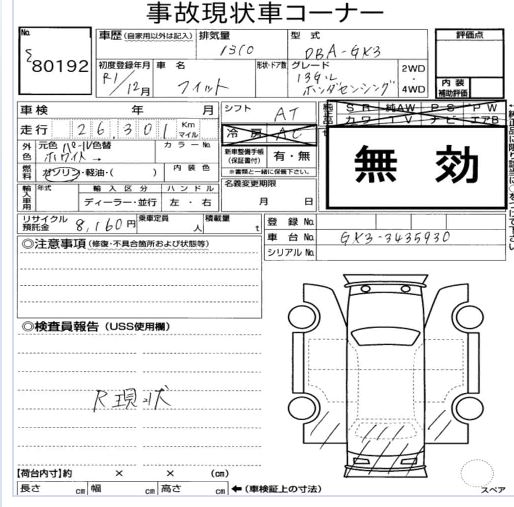 事故現状車コーナー
No. 80192
車歴 (自家用以外は記入) 排気量 1310 型式 DBA-GK3 評価点
初度登録年月 R1/12月 車名 フィット 形状・ドア数 グレード 13G・L ホンダセンシング 2WD・4WD 内装補助評価
車検 年 月 シフト AT 純正品 SR 純AW PS PW
走行 26,301 Km マイル 冷房 AC カワ TV ナビ エアB
外色 元色 パールホワイト → 色替 カラーNo. 新車整備手帳(保証書付) 有・無
無効
燃料 ガソリン・軽油・( ) 内装色 ※書類と一緒に保管下さい。
輸入車用 年式 輸入区分 ディーラー・並行 ハンドル 左・右 名義変更期限 月 日
リサイクル預託金 8,160円 乗車定員 人 積載量 t 登録No.
車台No. GK3-3435930
シリアルNo.
◎注意事項 (修復・不具合箇所および状態等)
◎検査員報告 (USS使用欄)
R現状
【荷台内寸】約 × × (cm)
長さ cm 幅 cm 高さ cm ←(車検証上の寸法)
スペア